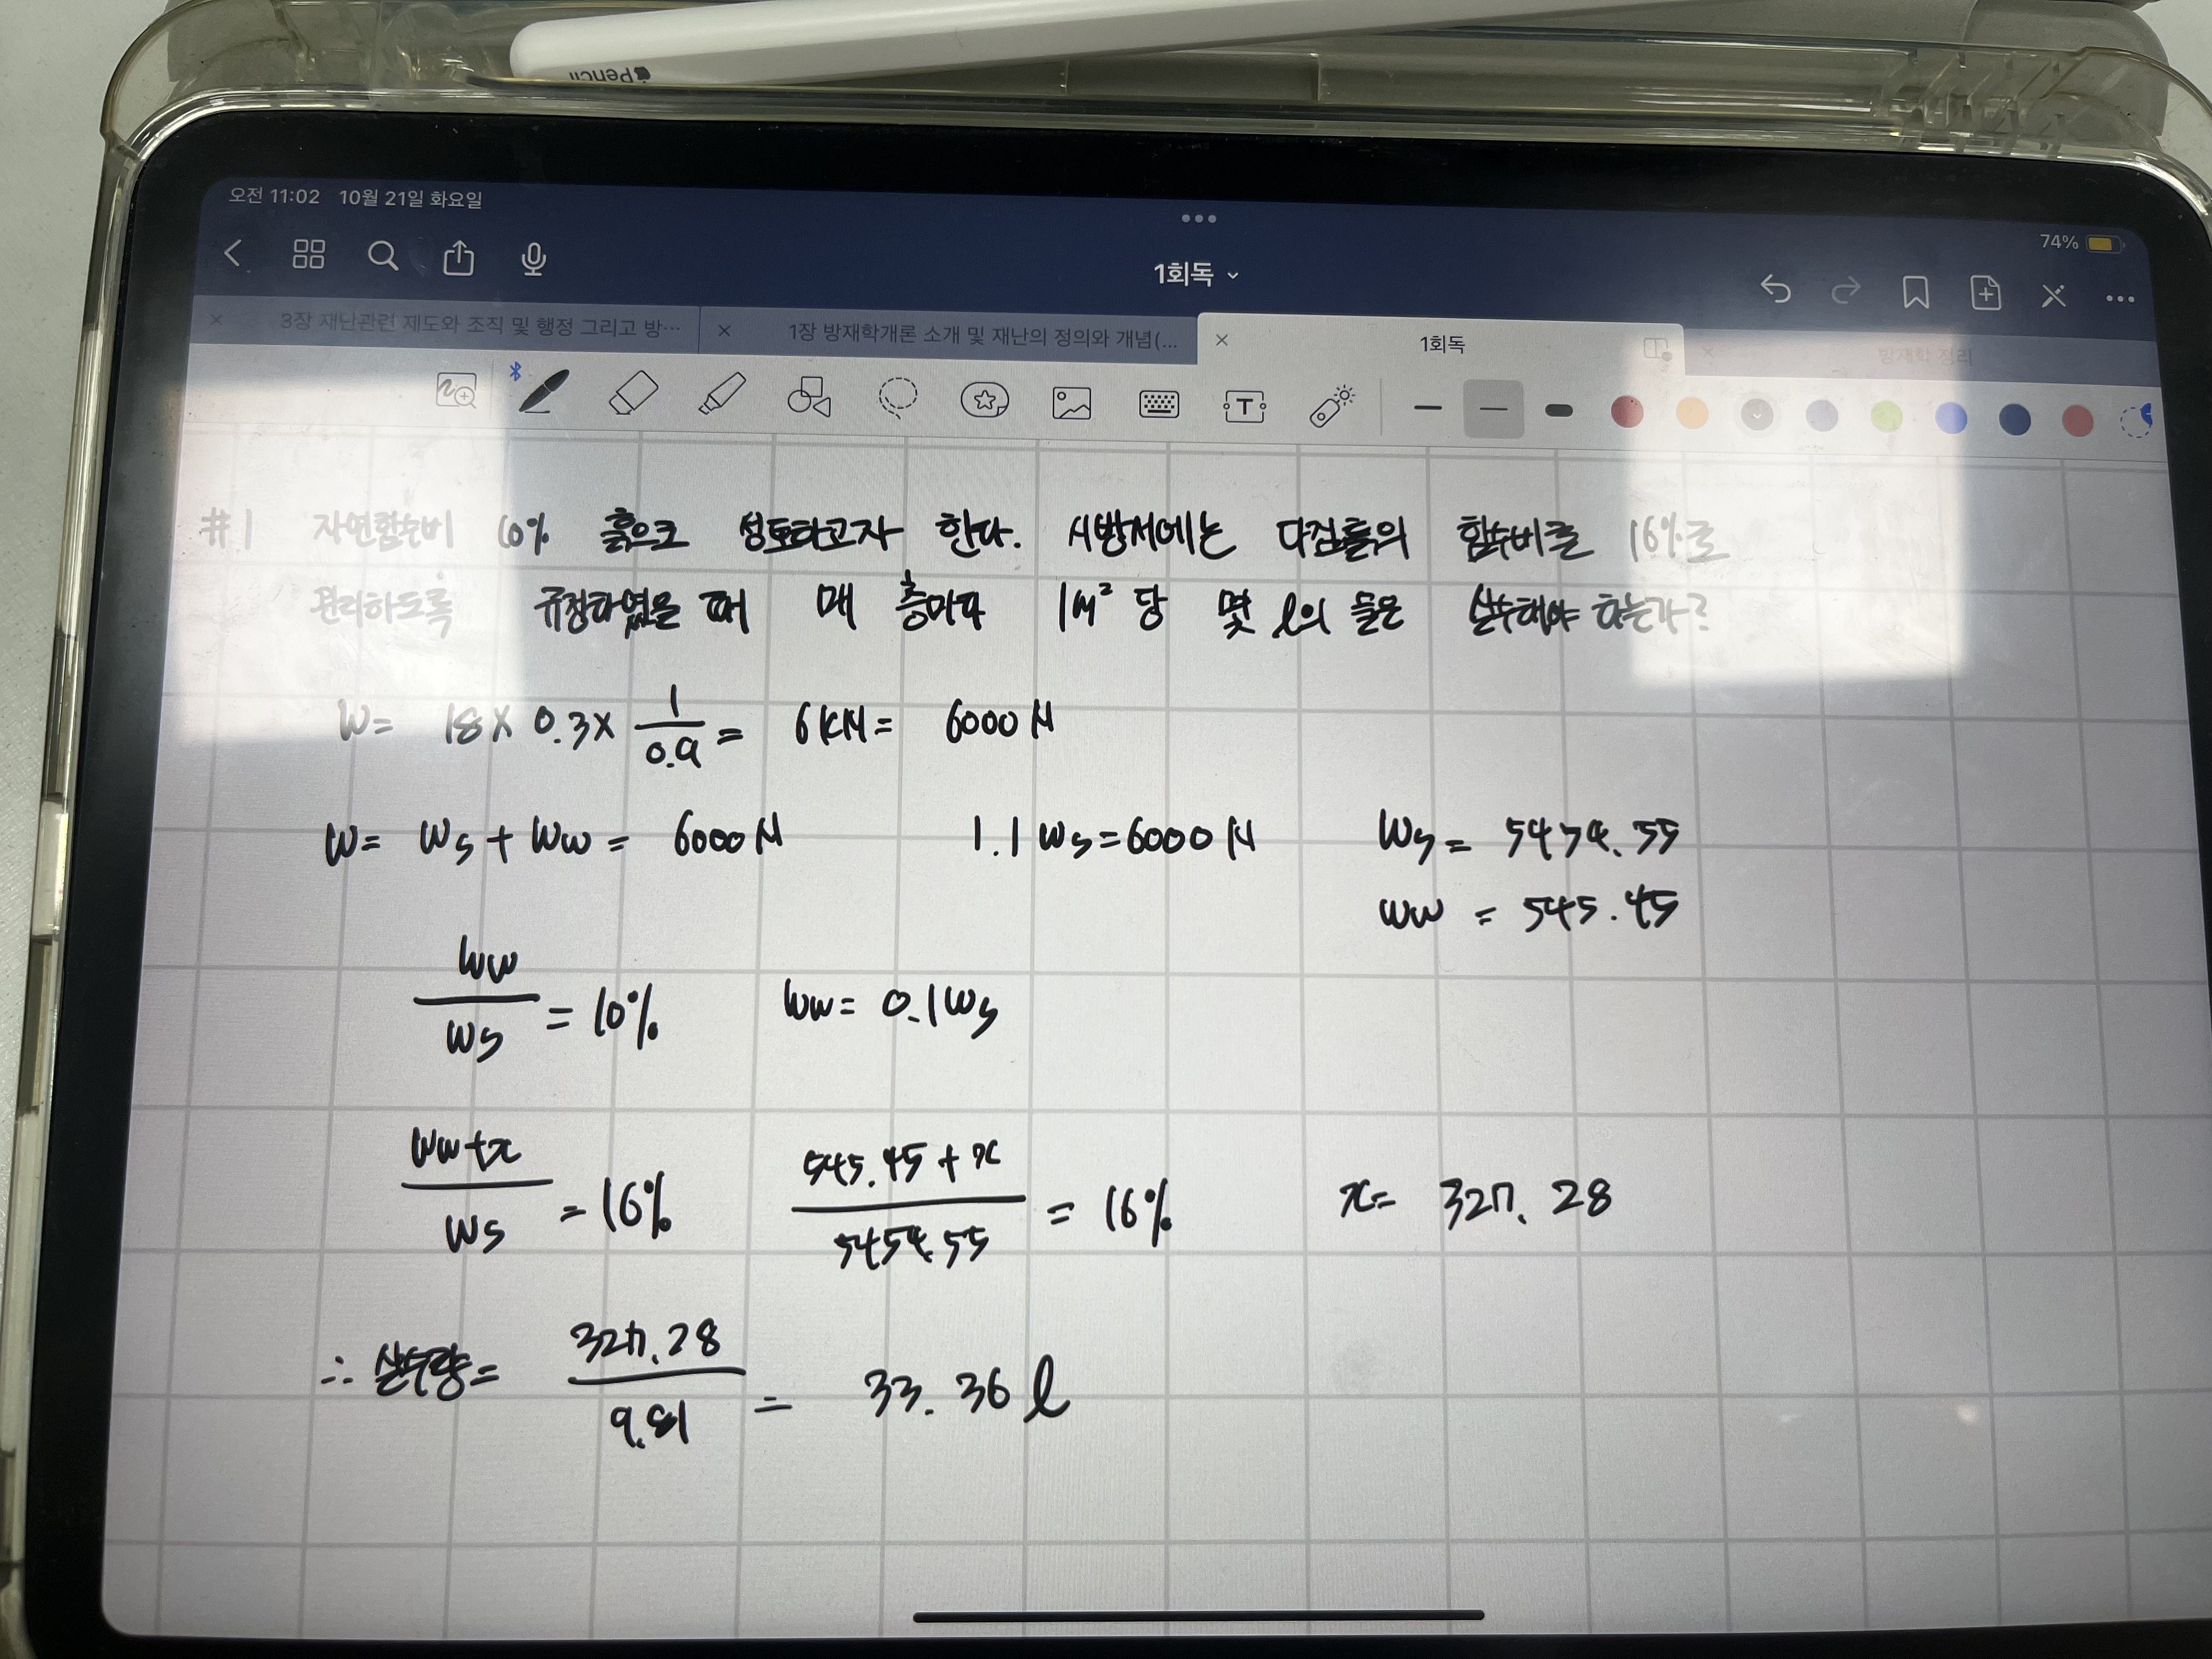 Pencil
오전 11:02 10월 21일 화요일
74%
1회독
3장 재난관련 제도와 조직 및 행정 그리고 방...
1장 방재학개론 소개 및 재난의 정의와 개념(...
1회독
방재학 정리
#1 자연함수비 10% 흙으로 성토하고자 한다. 시방서에는 다짐흙의 함수비를 16%로
관리하도록 규정하였을 때 매 층마다 1M² 당 몇 l의 물을 살수해야 하는가?
W= 18 X 0.3 X 1/0.9 = 6KN = 6000 N
W= Ws + Ww = 6000 N 1.1 Ws = 6000 N Ws = 5454.55
Ww = 545.45
Ww/Ws = 10% Ww = 0.1Ws
Ww+x/Ws = 16% 545.45 + x/5454.55 = 16% x = 327.28
∴ 살수량 = 327.28/9.81 = 33.36 l